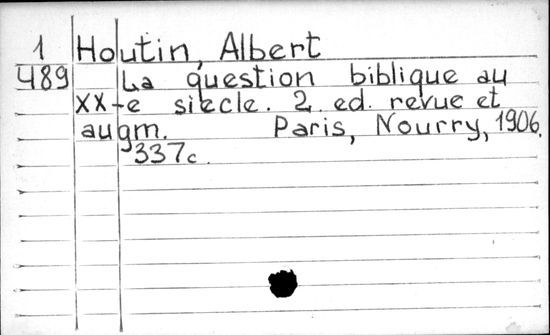 1 Houtin, Albert
489 La question biblique au
XX-e siecle. 2. ed. revue et
augm. Paris, Nourry, 1906.
337c.